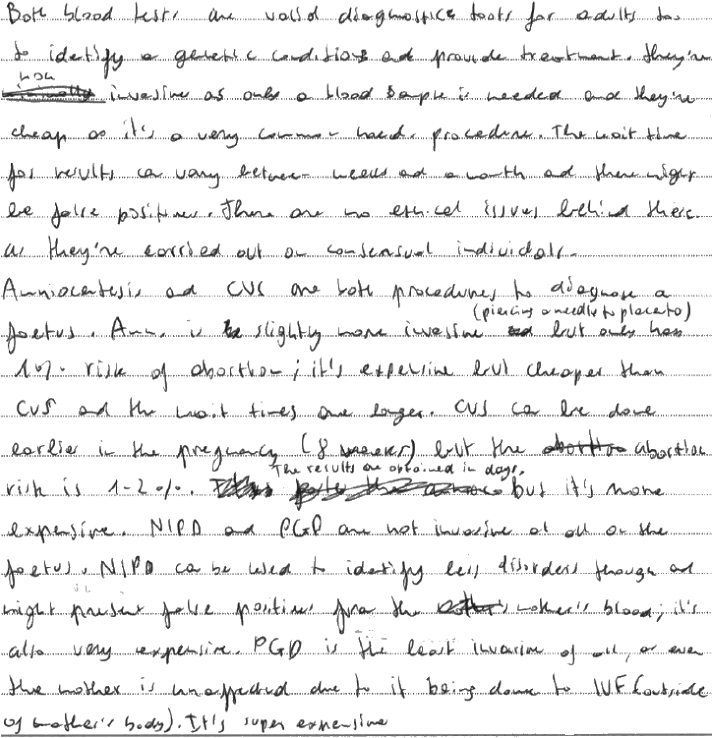 Both blood tests are valid diagnostics tools for adults to
to identify a genetic conditions and provide treatment. They're
non
invasive as only a blood sample is needed and they're
cheap as it's a very common procedure. The wait time
for results can vary between weeks and a month and there might
be false positives. There are no ethical issues behind these
as they're carried out on consensual individals.
Amniocentesis and CVS are both procedures to diagnose a
(piercing a needle to placenta)
foetus. Amn. is slightly more invasive but only has
1% risk of abortion; it's expensive but cheaper than
CVS and the wait times are longer. CVS can be done
earlier in the pregnancy (8 weeks) but the abortion
The results are obtained in days,
risk is 1-2%. but it's more
expensive. NIPD and PGD are not invasive at all on the
foetus. NIPD can be used to identify less disorders though and
might present false positives from the mother's blood; it's
also very expensive. PGD is the least invasive of all, as even
the mother is unaffected due to it being done to IVF (outside
of mother's body). It's super expensive